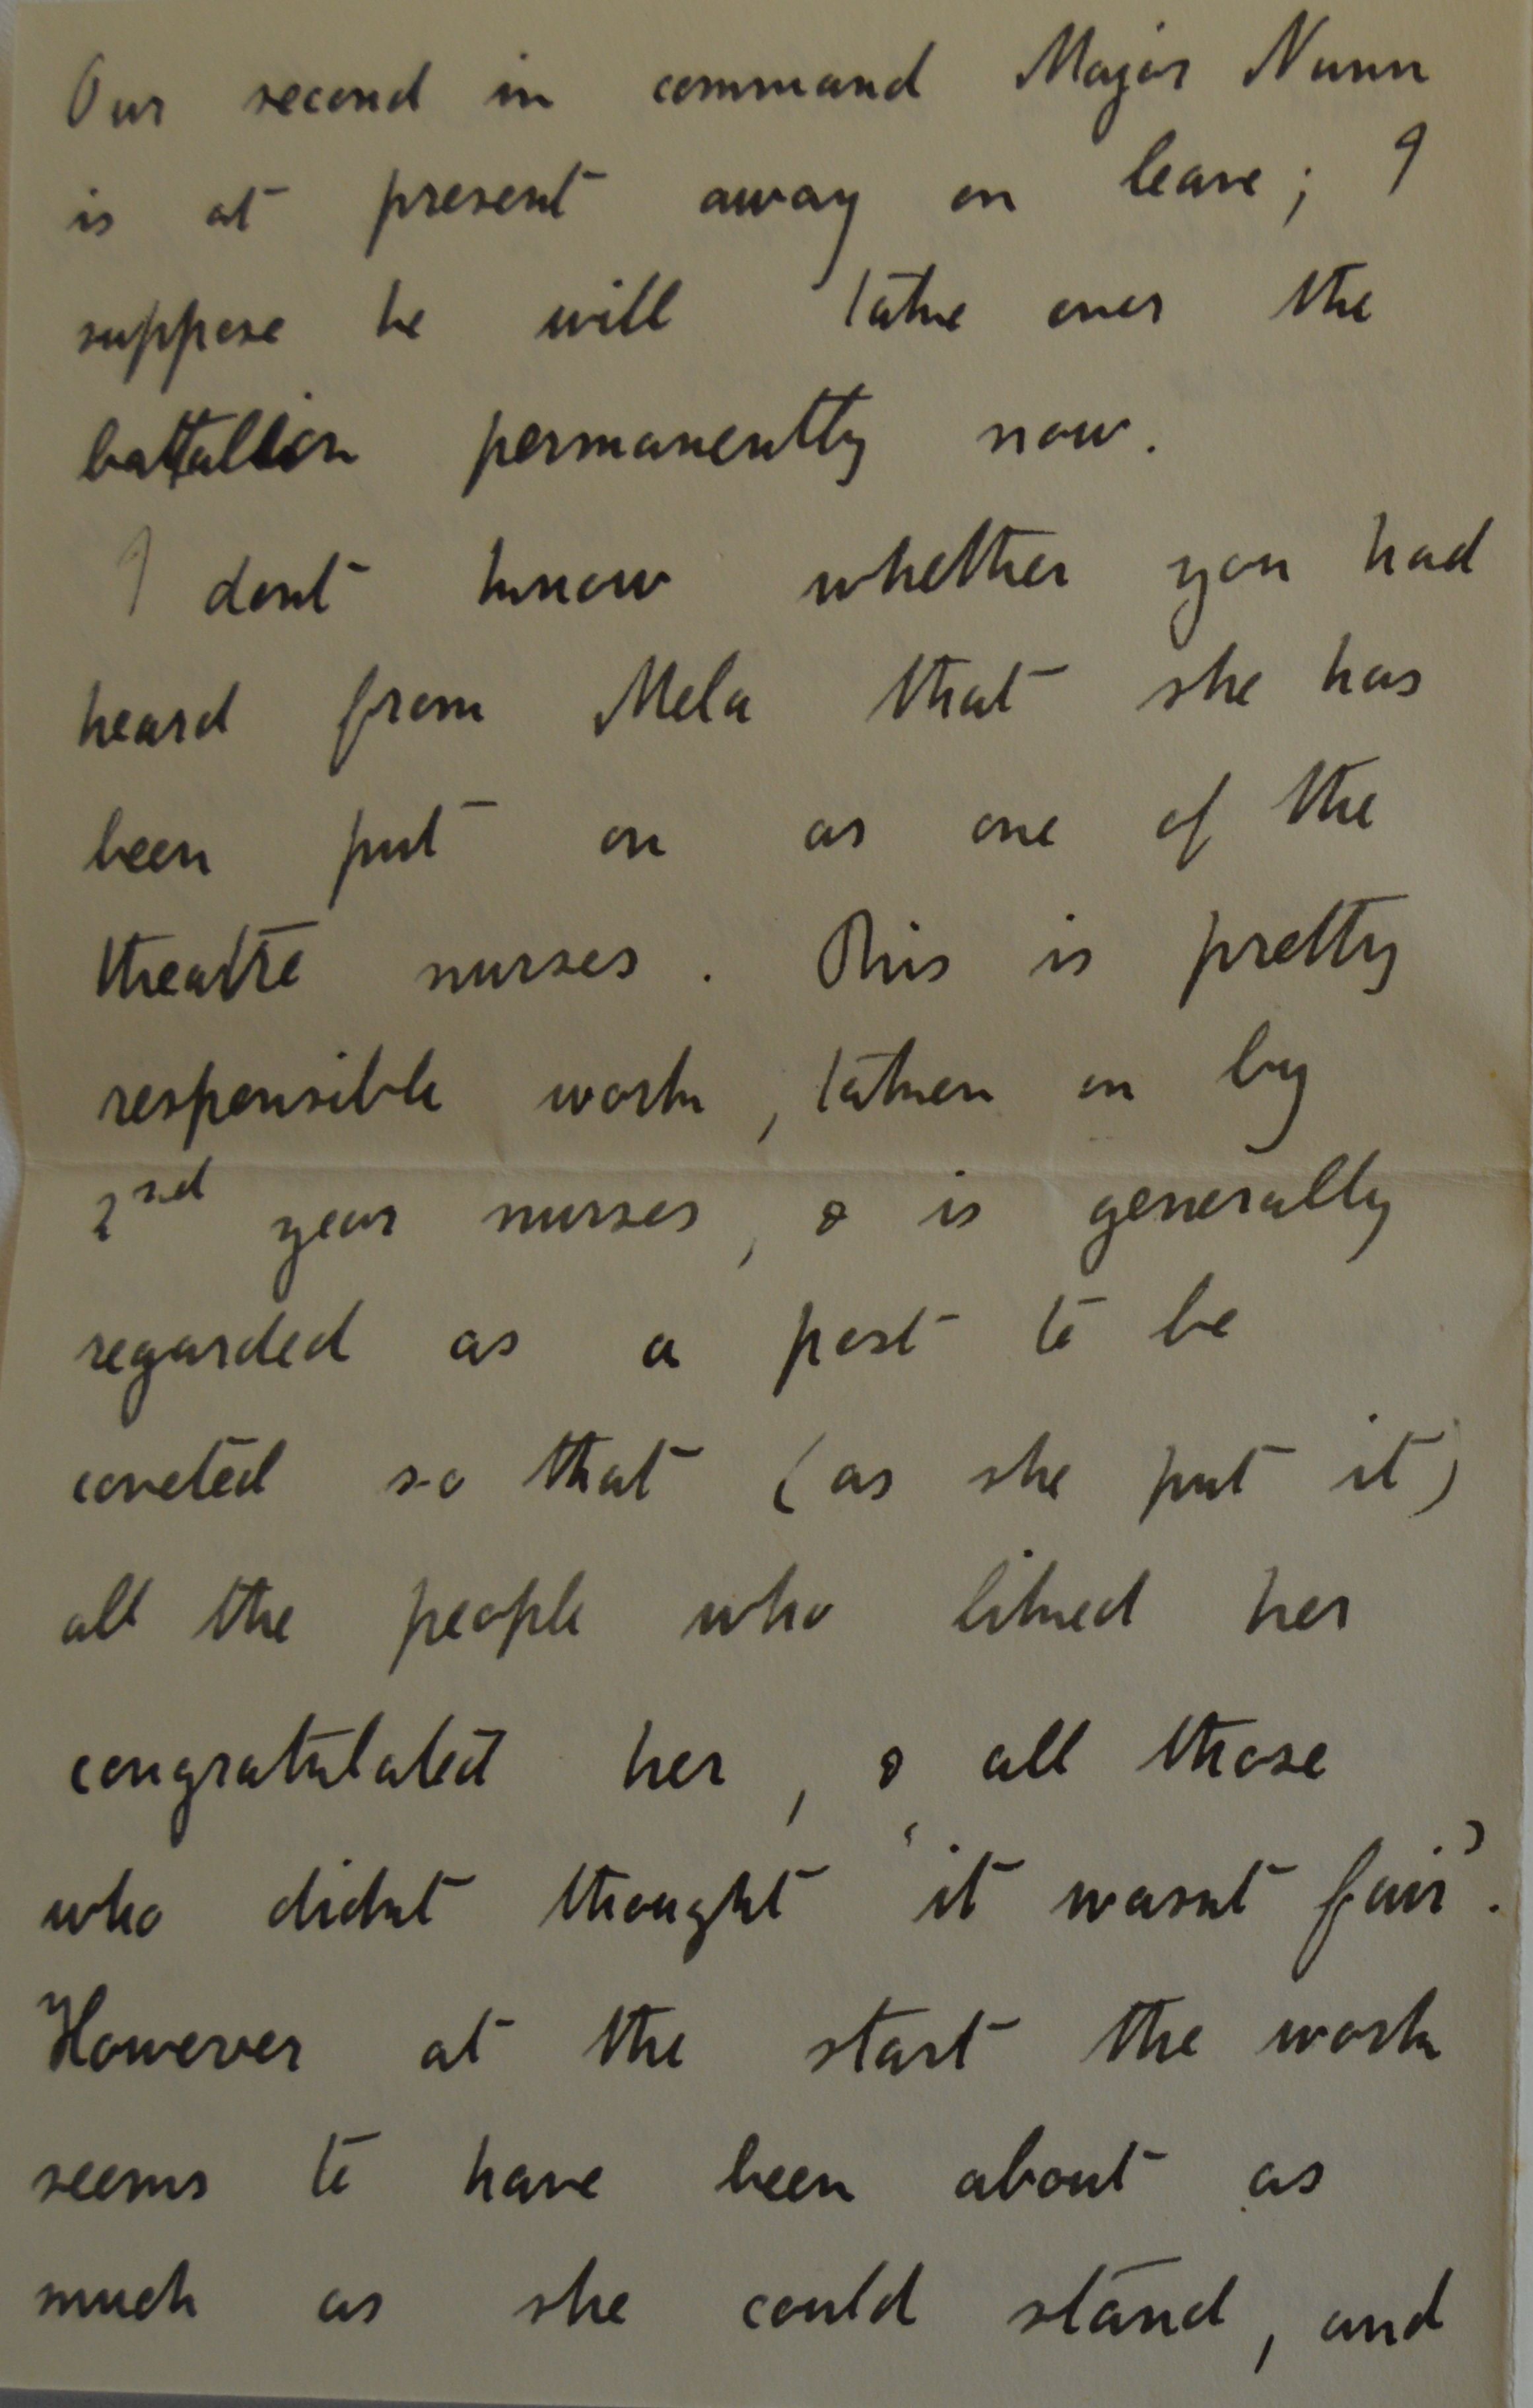 Our second in command Major Nunn
is at present away on leave; I
suppose he will take over the
battallion permanently now.
I dont know whether you had
heard from Mela that she has
been put on as one of the
theatre nurses. This is pretty
responsible work, taken on by
2nd year nurses, & is generally
regarded as a post to be
coveted so that (as she put it)
all the people who liked her
congratulated her, & all those
who didnt thought 'it wasnt fair'.
However at the start the work
seems to have been about as
much as she could stand, and